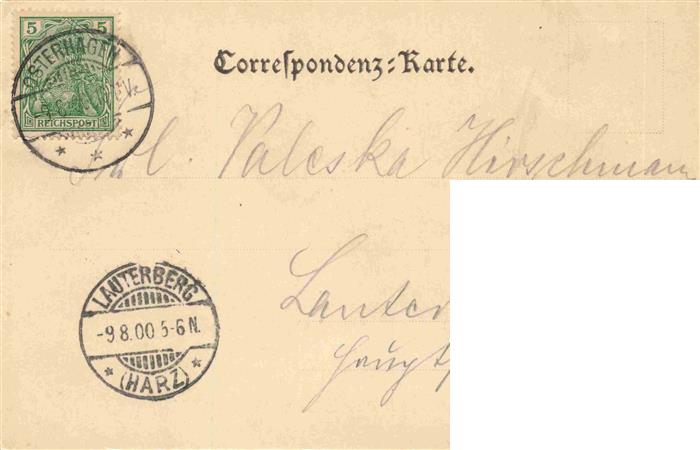 5 5
OSTERHAGEN
REICHSPOST
Correspondenz=Karte.
Frl. Valeska Hirschmann
LAUTERBERG
-9.8.00 5-6 N.
* (HARZ) *
Lauter
Haupt